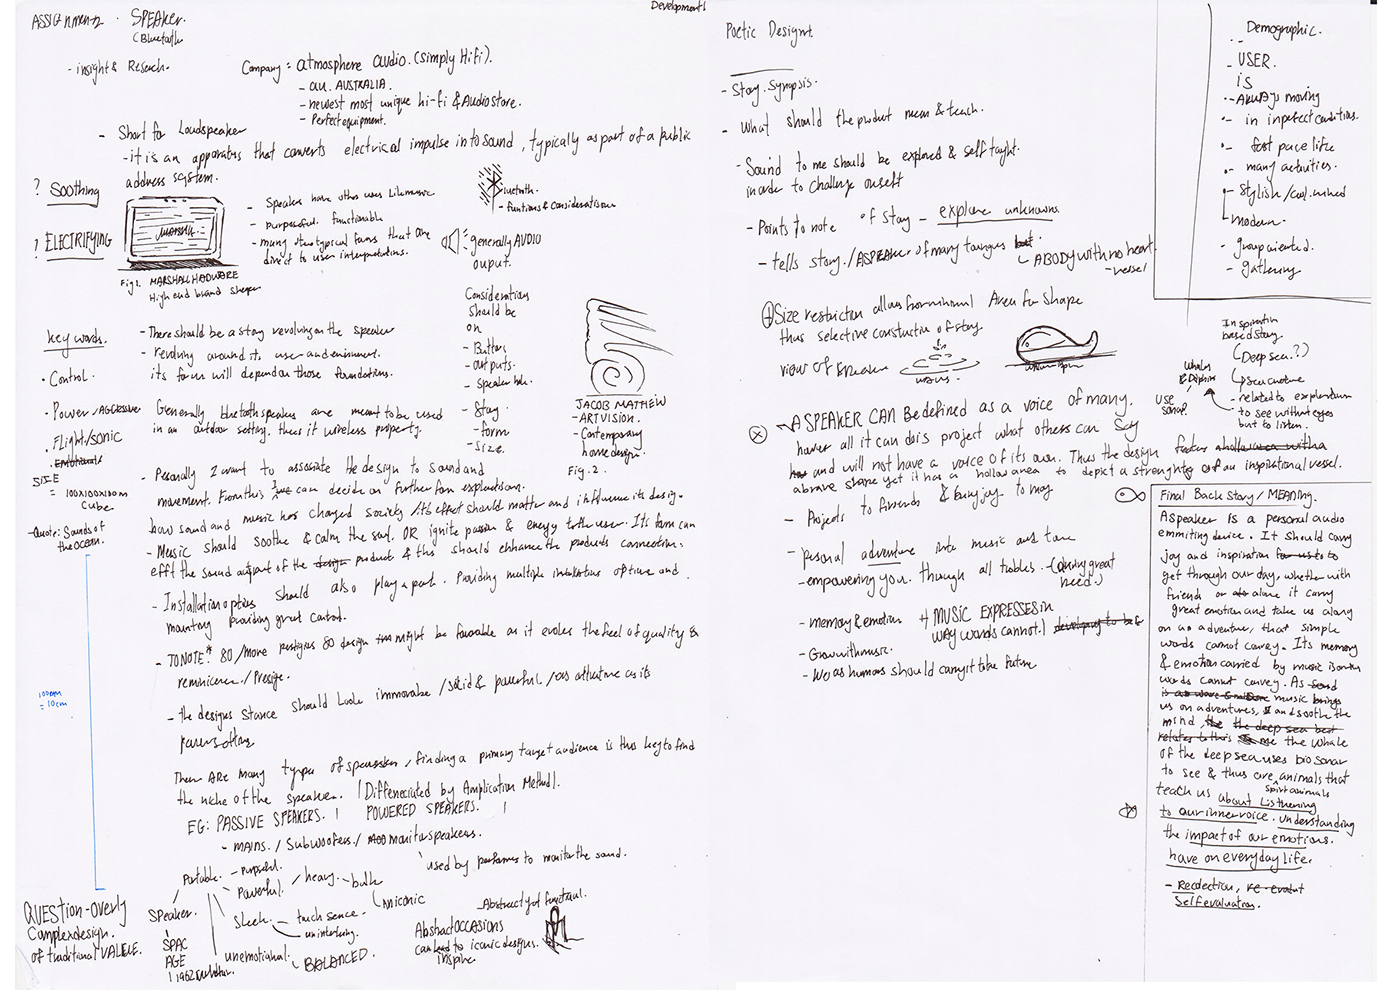 Development 1
ASSIGNMENT 2. SPEAKER.
(Bluetooth
- insight & Research.
Company = atmosphere audio. (Simply Hifi).
- AU. AUSTRALIA.
- newest most unique hi-fi & Audio store.
- Perfect equipment.
- Short for Loudspeaker
- it is an apparatus that converts electrical impulse into sound, typically as part of a public
address system.
? Soothing
? ELECTRIFYING
MARSHALL
Fig 1. MARSHALL HADWARE
High end brand
- Speaker have other uses like music
- purposeful. functionable
- many stereotypical forms that are
direct to user interpretations.
Bluetooth.
- funtions & Considerations
generally AUDIO
ouput.
Considerations
Should be
on
- Buttons
- outputs.
- Speaker hole.
- Story.
- form
- Size.
JACOB MATHEW
- ART VISION.
- Contemporary
home design.
Fig. 2.
key words.
• Control.
• Power/AGGRESSIVE
• Flight/sonic
• Emotional
SIZE
= 100X100X100m
Cube
- Quote: Sounds of
the ocean.
100mm
= 10cm
- There should be a story revolving on the speaker
- revolving around it, use and enviroment.
its form will depend on those foundations.
Generally bluetooth speakers are meant to be used
in an outdoor setting. thus it wireless property.
- Personally I want to associate the design to sound and
movement. From this I can decide on further form explorations.
how sound and music has changed society /its effect should matter and influence its design.
- Music should soothe & calm the soul. OR ignite passion & energy to the user. Its form can
efft the sound output of the design product & this should enhance the products connection.
- Installation options should also play a part. Providing multiple installations options and
mounting providing great control.
- TO NOTE:* 80/more prestigious 80 design might be favorable as it evokes the feel of quality &
reminicence / Prestige.
- the designs stance should look immovable /solid & powerful /as attention as its
There ARE many types of speakers, finding a primary target audience is thus key to find
the niche of the speaker. (Differenciated by Amplication Method).
EG: PASSIVE SPEAKERS. | POWERED SPEAKERS. |
- MAINS. / Subwoofers / monitor speakers.
used by performers to monitor the sound.
Portable. - purposeful.
Powerful. / heavy. - bulk
iniconic
Speaker.
Sleek. - touch sence.
- uninterfering.
SPAC
AGE
unemotional. - BALANCED.
QUESTION - overly
Complex design.
of traditional VALUE.
- Abstracty of functional.
Abstract OCCASIONS
can lead to iconic designs.
inspire
Poetic Design.
- Story. Synopsis.
- What should the product mean & teach.
- Sound to me should be explored & self taught.
in order to challenge oneself
- Points to note of Story - explore unknowns.
- tells story. / A SPEAKER of many tongues but.
A BODY with no heart
- vessel
+ Size restriction allows for minimal Area for Shape
thus selective constuction of story.
view of speaker
waves.
- A SPEAKER CAN BE defined as a voice of many.
however all it can do is project what others can Say
and will not have a voice of its own. Thus the design
above shape yet it has a hollow area to depict a strenght of an inspirational vessel.
- Projects to friends & bring joy to many
- personal adventure into music and tone
- empowering you. through all troubles. - (during great
need.)
- memory & emotion + MUSIC EXPRESSES in
way words cannot.
- Grow with music.
- We as humans should carry it to the future
Demographic.
- USER.
is
- Always moving
- in inperfect conditions.
- fast pace life
- many activities.
- Stylish / cool minded
modern.
- group oriented.
- gathering
Inspiration
based story.
(Deep sea.?)
Sea creature
- related to exploration
- to see without eyes
but to listen.
Whales
& Dolphins
USE
sonar.
Final Back Story / MEANING.
A speaker is a personal audio
emmiting device. It should carry
joy and inspiration for us to to
get through our day, whether with
friends or alone it carry
great emotion and take us along
on an adventure, that simple
words cannot convey. Its memory
& emotion carried by music is onto
words cannot convey. As
music brings
us on adventures, and soothe the
mind, the the deep sea best
relates to this me the Whale
of the deep sea uses bio sonar
to see & thus are animals that
spirit animals
teach us about Listhening
to our inner voice. Understanding
the impact of our emotions.
have on everyday life.
- Recollection,
Self evaluation.